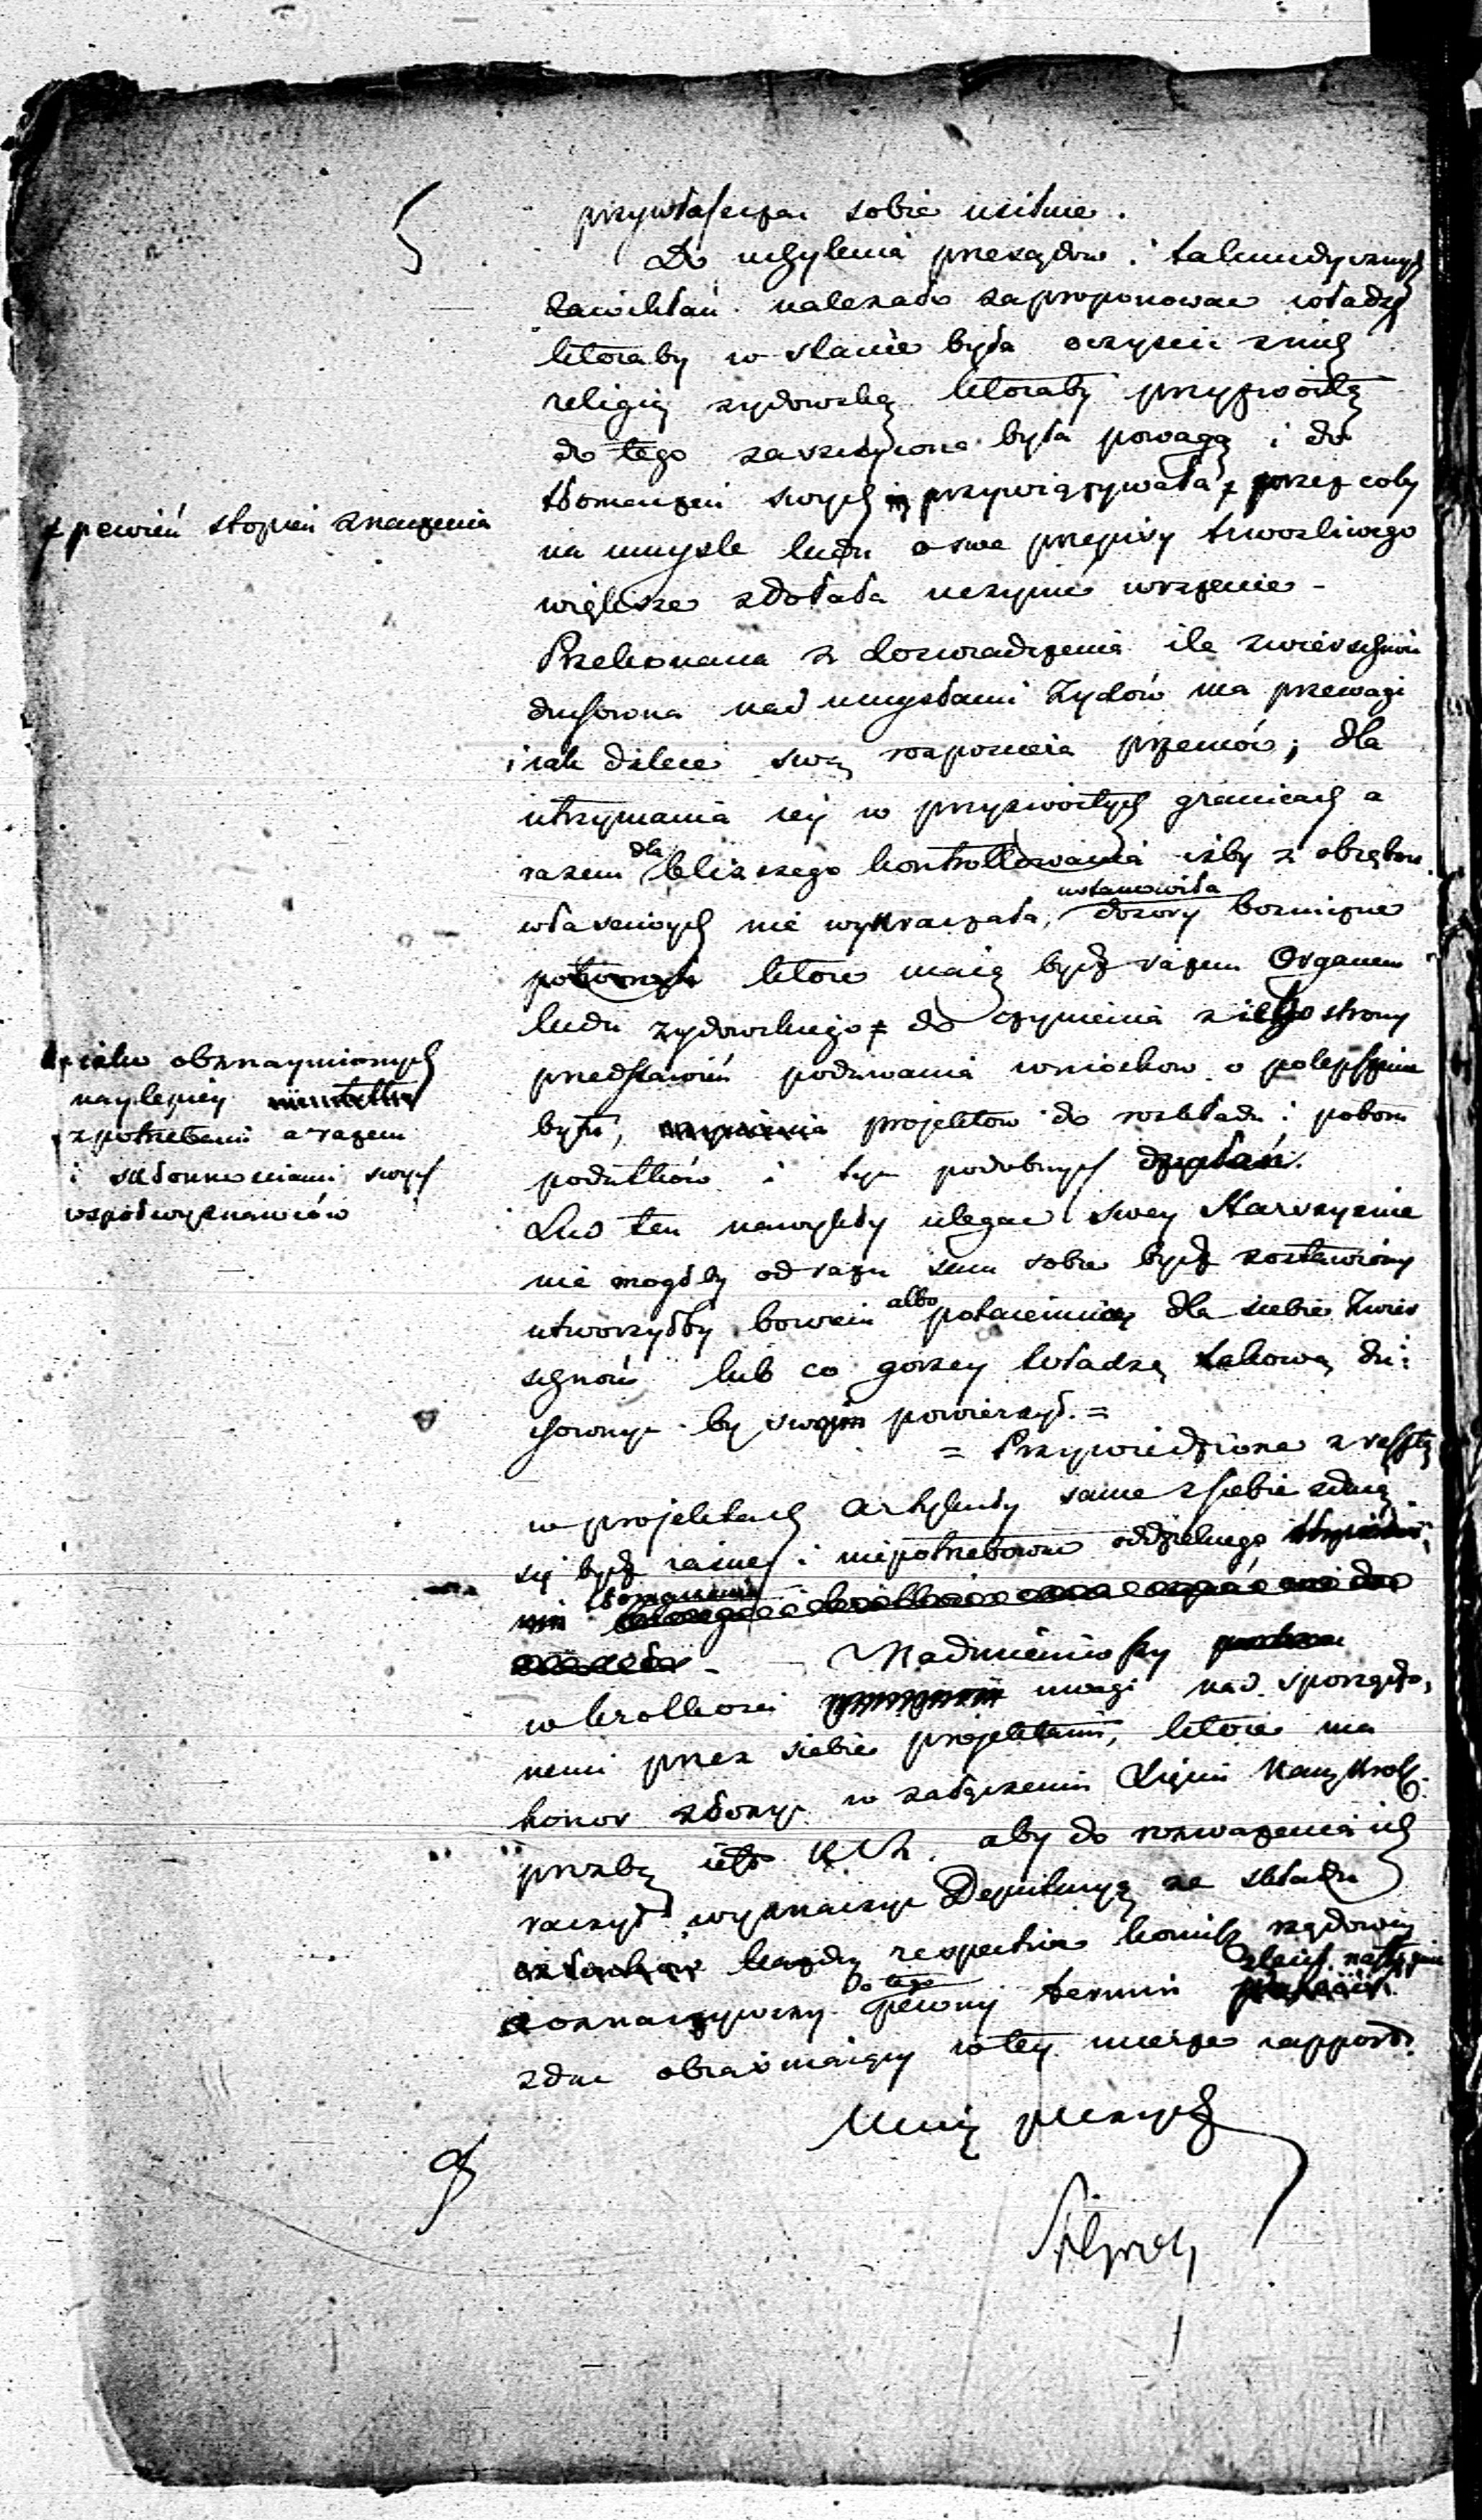 5
przywłaszczac sobie usiłuie.
Do uchylenia przesądow i talmudycznych
zawikłań należało zaproponowac władzę
któraby w stanie była oczyścić z nich
religią żydowską któraby przyzwoitą
do tego zaszczycona była powagą i do
tłomaczeń swych przywiązywała + przez coby
+ pewień stopień znaczenia
na umyśle ludu o swe przepisy trwozliwego
większe zdołała uczynić wrażenie -
Przekonana z doswiadczenia ile zwierzchność
duchowna nad umysłami Żydów ma przewagi
i iak dalece swą rozpościera przemoc; dla
utrzymania iey w przyzwoitych granicach a
razem dla bliższego kontrollowania iżby z obrębow
właściwych nie wykraczała, ustanowiła dozory boznicze
które maią bydź razem Organem
ludu żydowskiego + do czynienia z iego strony
+ iako obznaymionych
naylepiey
z potrzebami a razem
i skłonnościami swych
wspołwyznawców
przedstawień podawania wniosków o polepszenie
bytu, projektow do rozkładu i poboru
podatków i tym podobnych działań.
Lud ten nawykły ulegac swey Starszyznie
nie mogłby od razu sam sobie bydź zostawiony
utworzyłby bowiem albo potaiemną dla siebie Zwierz
chność lub co gorzey władzę takową du:
chownym by swoim powierzył. =
= Przywiedzione zresztą
w projektach artykuły same z siebie zdaią
się bydź iasne i niepotrzebować oddzielnego
tłomaczenia
Nadmieniwszy
w krótkości uwagi nad sporządzo,
nemi przez siebie projektami, które ma
honor złożyć w załączeniu Xięciu Namₖ Krol.
prosbę aby do rozważenia ich
raczył wyznaczyć Deputacyą ze składu
każdy respective komiss rządowey
oznaczywszy do tego pewny termin
zdac obeimuiący w tey mierze rapport.